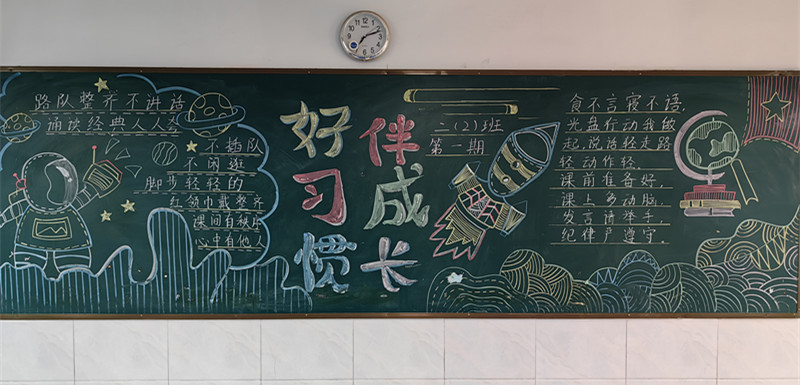 路队整齐不讲话
诵读经典人人
不插队
不闲逛
脚步轻轻的
红领巾戴整齐
课间有秩序
心中有他人
好习惯
伴成长
二(2)班
第一期
食不言寝不语.
光盘行动我做
起,说话轻走路
轻动作轻.
课前准备好,
课上多动脑.
发言请举手
纪律严遵守.